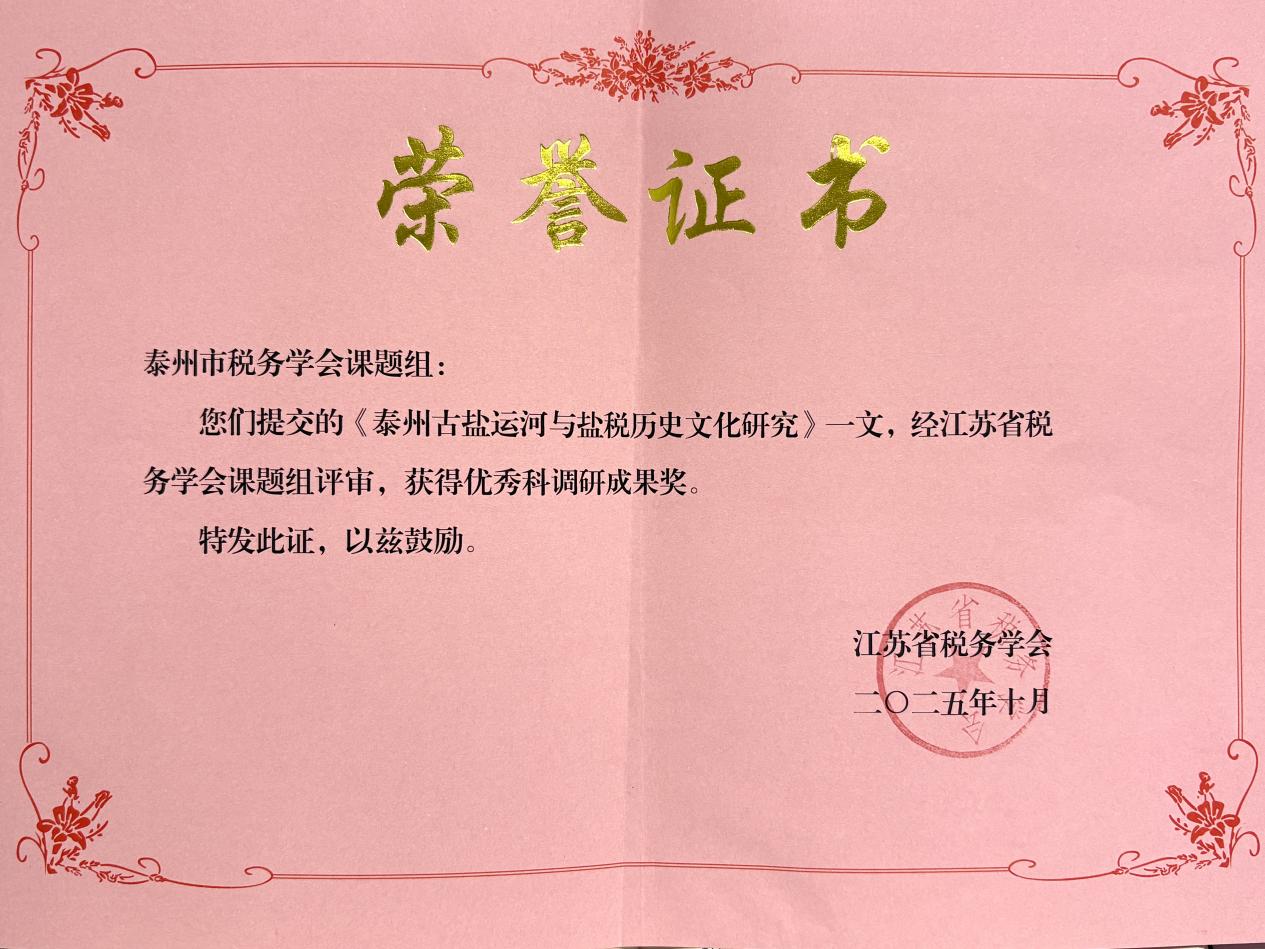 荣誉证书
泰州市税务学会课题组：
您们提交的《泰州古盐运河与盐税历史文化研究》一文，经江苏省税
务学会课题组评审，获得优秀科调研成果奖。
特发此证，以兹鼓励。
江苏省税务学会
江苏省税务学会
二〇二五年十月